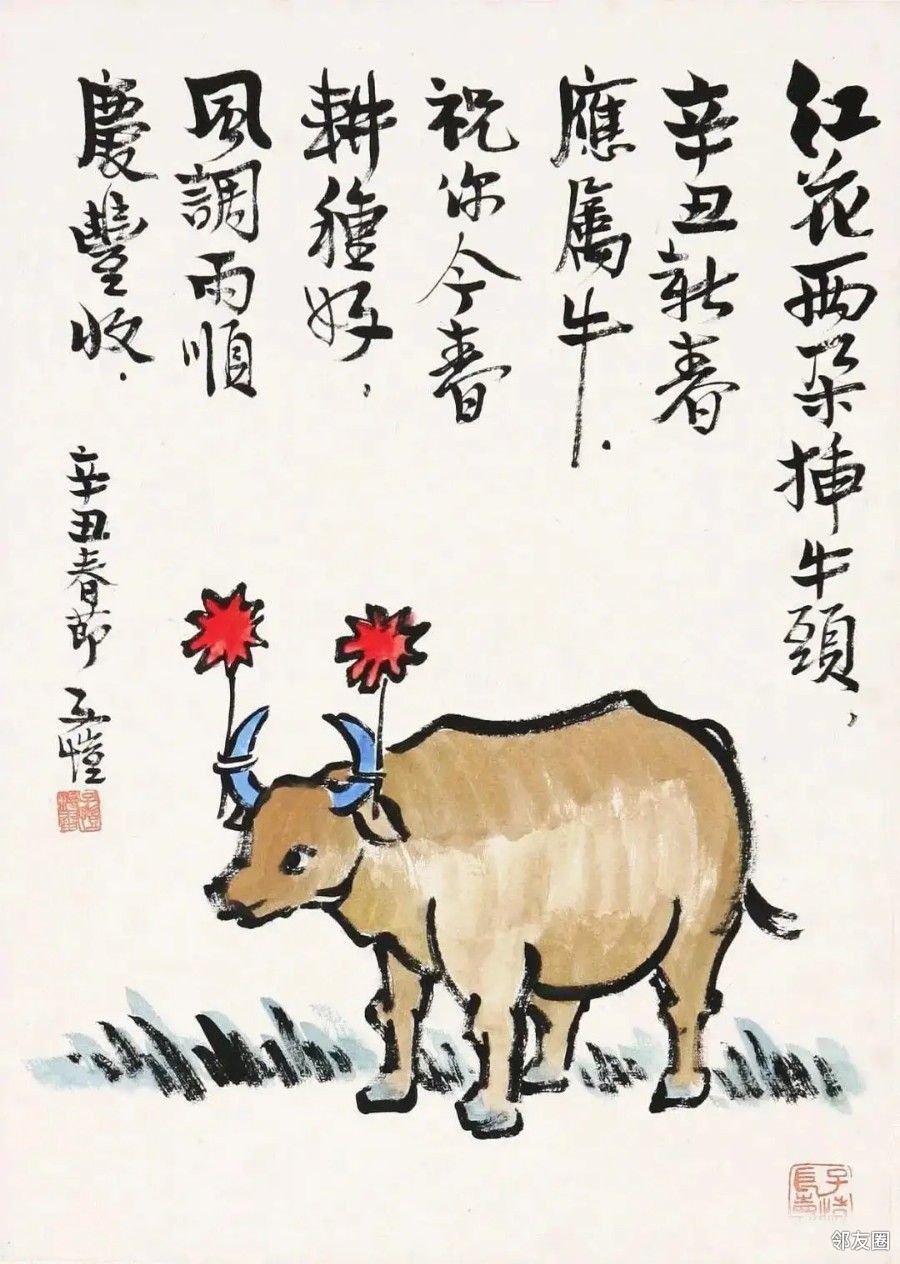 红花两朵插牛頭，
辛丑新春
應屬牛．
祝你今春
耕種好，
風調雨順
慶豐收．
辛丑春節 子愷
邻友圈